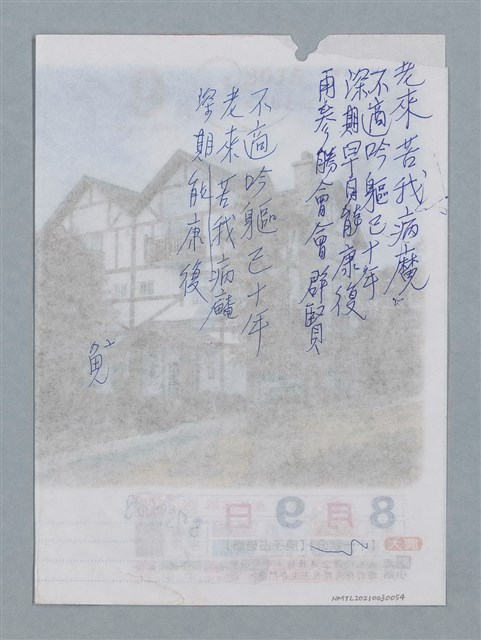 老來苦我病魔
不適吟軀已十年
深期早日能康復
再參勝會會群賢
不適吟軀已十年
老來苦我病魔
深期能康復
8月9日
NMTL20210030054